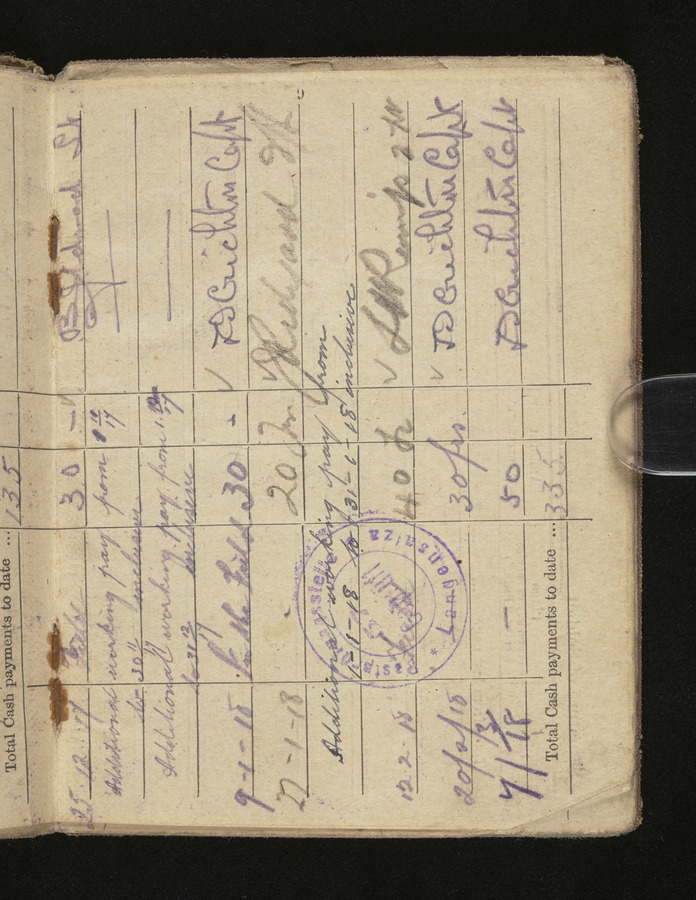 Total Cash payments to date ... 135
25.12.17 Field 30 -
Additional working pay from 8 10/17
to 30 11 inclusive
Additional working pay from 1.12/17
to 31 12/17 inclusive
9-1-18 In the Field 30 - JD Crichton Capt
27-1-18 - 20 fr
Additional working pay from
1-1-18 to 31-1-18 inclusive
12.2.18 40 fr
20/2/18 30 frs. JD Crichton Capt
7/3/18 - 50 JD Crichton Capt
Total Cash payments to date ... 335
Langensalza